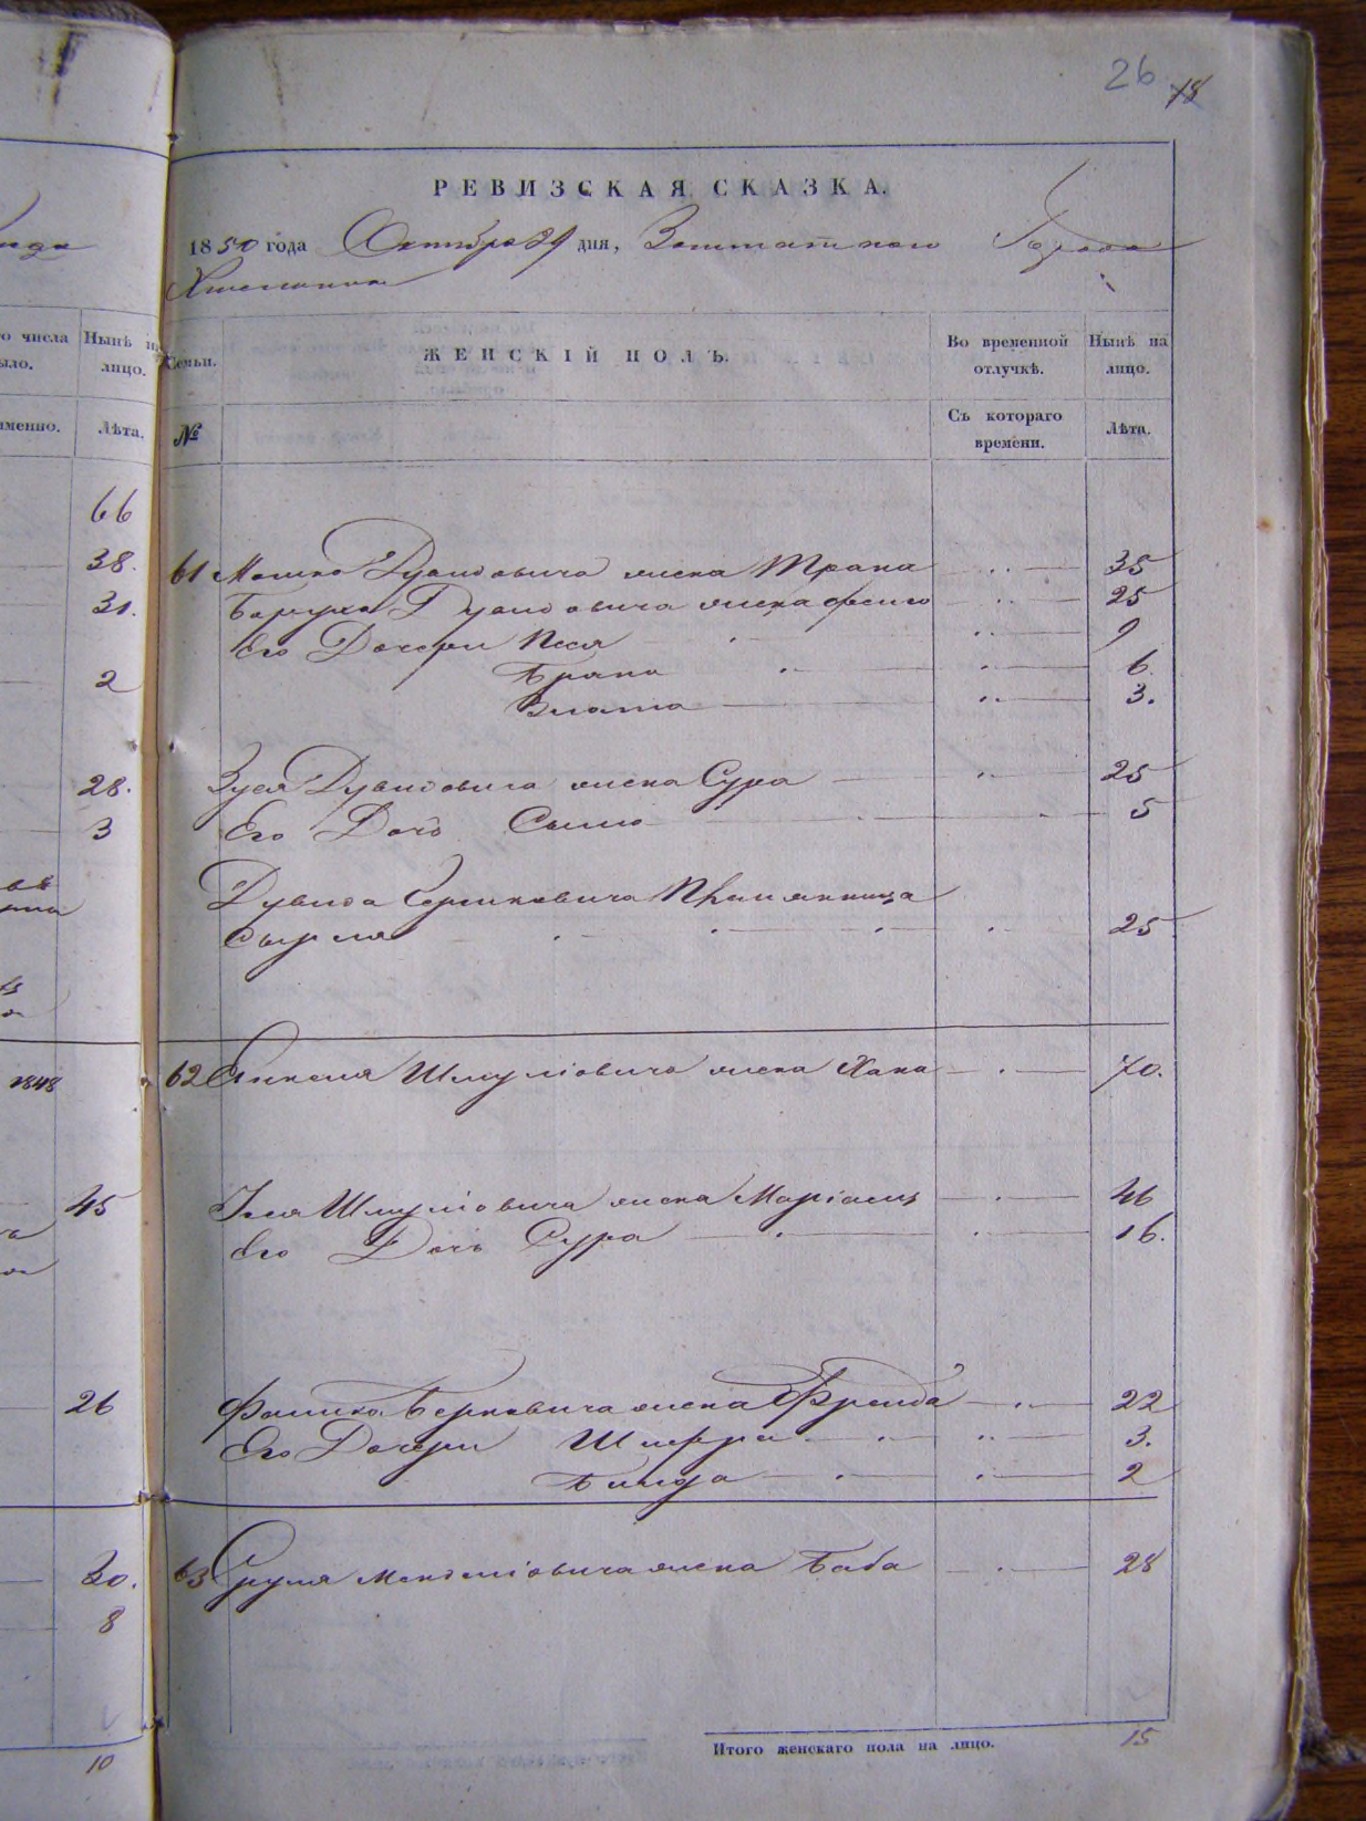 26 18
РЕВИЗСКАЯ СКАЗКА.
1850 года Октября 29 дня, Заштатнаго Города
Хмельника
Нынѣ на лицо.
Лѣта.
66
38.
31.
2
28.
3
1848
45
26
30.
8
10
Семьи. ЖЕНСКІЙ ПОЛЪ. Во временной отлучкѣ. Нынѣ на лицо.
№ Съ котораго времени. Лѣта.
61 Мошка Дувидовича жена Трана 35
Боруха Дувидовича жена Фейга 25
Его Дочери Песя 9
Брана 6.
Злата 3.
Зуся Дувидовича жена Сура 25
Его Дочь 5
Дувида Берковича Племянница
25
62 Янкеля Шмуліовича жена Хана 70.
Шмуліовича жена Маріасц 46
Его Дочь Сура 16.
Берковича жена Фрейда 22
Его Дочери Шифра 3.
Бинда 2
63 Сруля Мендліовича жена Баба 28
Итого женскаго пола на лицо. 15